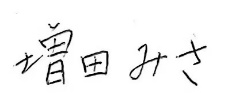 増田みさ